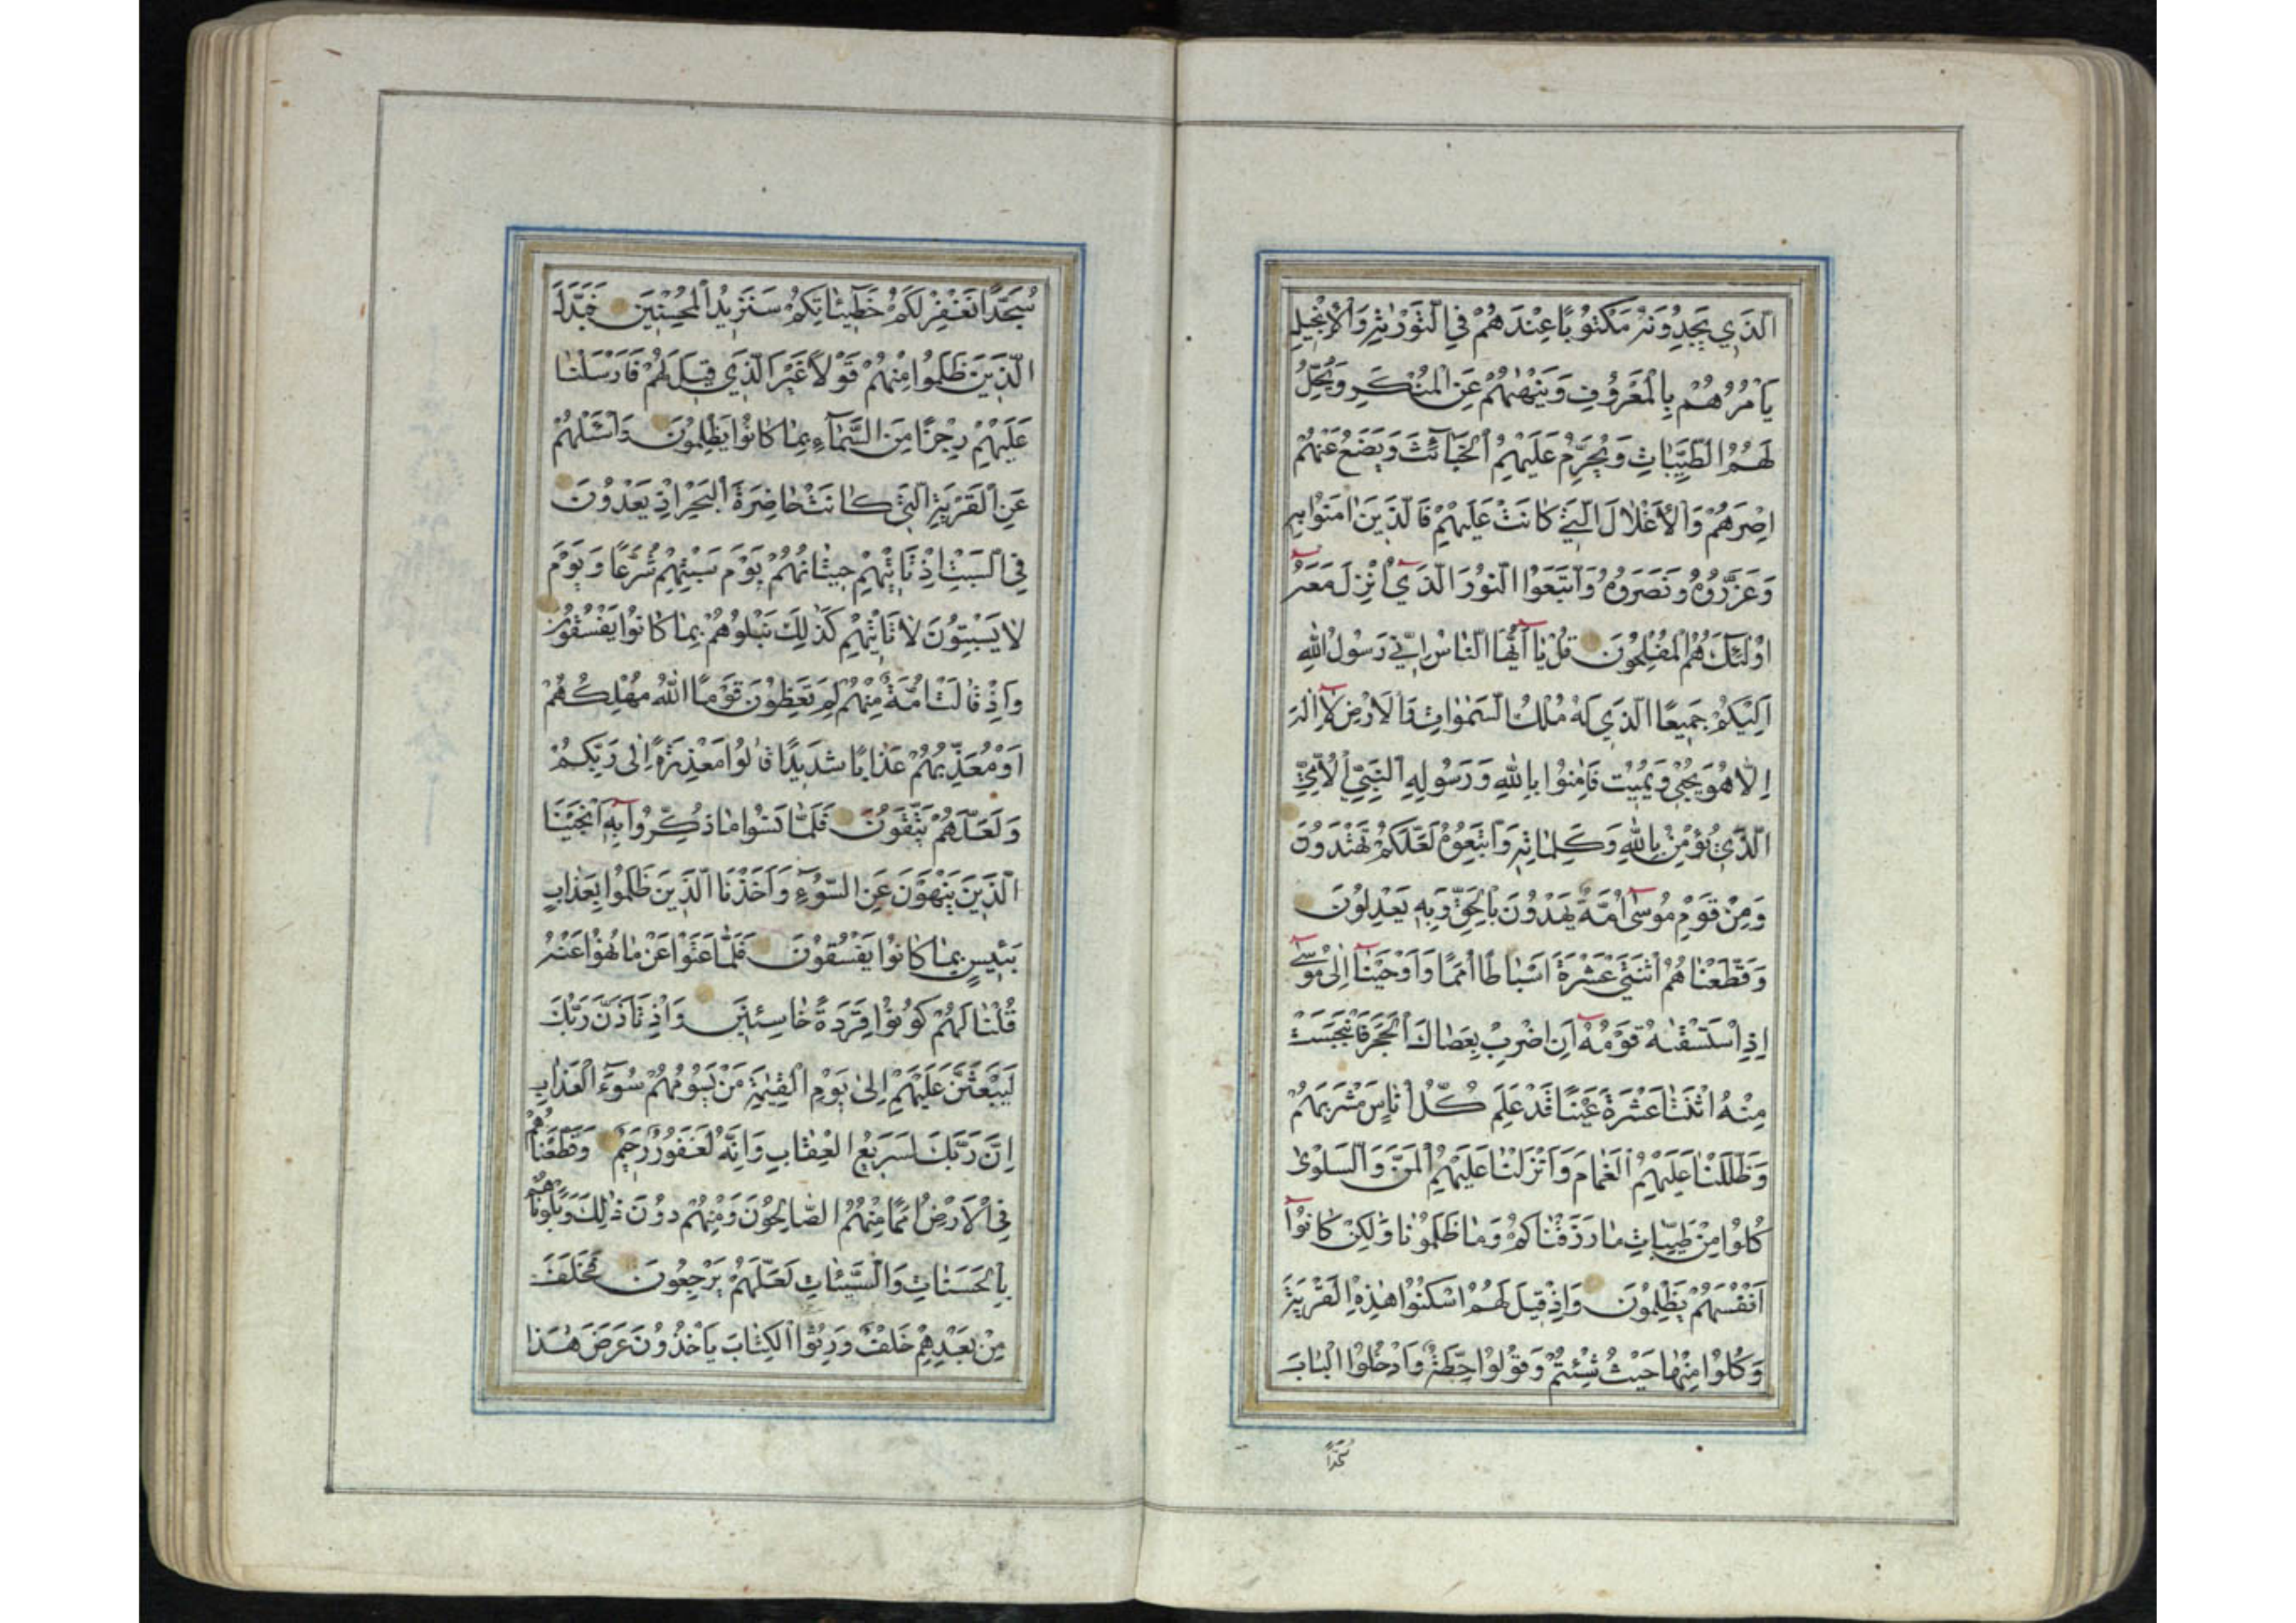 الَّذِي يَجِدُونَهُ مَكْتُوبًا عِنْدَهُمْ فِي التَّوْرٰيةِ وَالْاِنْجِيلِ
يَأْمُرُهُمْ بِالْمَعْرُوفِ وَيَنْهٰيهُمْ عَنِ الْمُنْكَرِ وَيُحِلُّ
لَهُمُ الطَّيِّبَاتِ وَيُحَرِّمُ عَلَيْهِمُ الْخَبَآئِثَ وَيَضَعُ عَنْهُمْ
اِصْرَهُمْ وَالْاَغْلَالَ الَّتِي كَانَتْ عَلَيْهِمْ فَالَّذِينَ اٰمَنُوا بِهِ
وَعَزَّرُوهُ وَنَصَرُوهُ وَاتَّبَعُوا النُّورَ الَّذِيٓ اُنْزِلَ مَعَهُٓ
اُولٰٓئِكَ هُمُ الْمُفْلِحُونَ قُلْ يَآ اَيُّهَا النَّاسُ اِنِّي رَسُولُ اللّٰهِ
اِلَيْكُمْ جَمِيعًا الَّذِي لَهُ مُلْكُ السَّمٰوَاتِ وَالْاَرْضِ لَآ اِلٰهَ
اِلَّا هُوَ يُحْيِي وَيُمِيتُ فَاٰمِنُوا بِاللّٰهِ وَرَسُولِهِ النَّبِيِّ الْاُمِّيِّ
الَّذِي يُؤْمِنُ بِاللّٰهِ وَكَلِمَاتِهِ وَاتَّبِعُوهُ لَعَلَّكُمْ تَهْتَدُونَ
وَمِنْ قَوْمِ مُوسٰىٓ اُمَّةٌ يَهْدُونَ بِالْحَقِّ وَبِهِ يَعْدِلُونَ
وَقَطَّعْنَاهُمُ اثْنَتَيْ عَشْرَةَ اَسْبَاطًا اُمَمًا وَاَوْحَيْنَآ اِلٰى مُوسٰىٓ
اِذِ اسْتَسْقٰيهُ قَوْمُهُٓ اَنِ اضْرِبْ بِعَصَاكَ الْحَجَرَ فَانْبَجَسَتْ
مِنْهُ اثْنَتَا عَشْرَةَ عَيْنًا قَدْ عَلِمَ كُلُّ اُنَاسٍ مَشْرَبَهُمْ
وَظَلَّلْنَا عَلَيْهِمُ الْغَمَامَ وَاَنْزَلْنَا عَلَيْهِمُ الْمَنَّ وَالسَّلْوٰى
كُلُوا مِنْ طَيِّبَاتِ مَا رَزَقْنَاكُمْ وَمَا ظَلَمُونَا وَلٰكِنْ كَانُوٓا
اَنْفُسَهُمْ يَظْلِمُونَ وَاِذْ قِيلَ لَهُمُ اسْكُنُوا هٰذِهِ الْقَرْيَةَ
وَكُلُوا مِنْهَا حَيْثُ شِئْتُمْ وَقُولُوا حِطَّةٌ وَادْخُلُوا الْبَابَ
سُجَّدًا
سُجَّدًا نَغْفِرْ لَكُمْ خَطِيٓئَاتِكُمْ سَنَزِيدُ الْمُحْسِنِينَ فَبَدَّلَ
الَّذِينَ ظَلَمُوا مِنْهُمْ قَوْلًا غَيْرَ الَّذِي قِيلَ لَهُمْ فَاَرْسَلْنَا
عَلَيْهِمْ رِجْزًا مِنَ السَّمَآءِ بِمَا كَانُوا يَظْلِمُونَ وَاسْئَلْهُمْ
عَنِ الْقَرْيَةِ الَّتِي كَانَتْ حَاضِرَةَ الْبَحْرِ اِذْ يَعْدُونَ
فِي السَّبْتِ اِذْ تَأْتِيهِمْ حِيتَانُهُمْ يَوْمَ سَبْتِهِمْ شُرَّعًا وَيَوْمَ
لَا يَسْبِتُونَ لَا تَأْتِيهِمْ كَذٰلِكَ نَبْلُوهُمْ بِمَا كَانُوا يَفْسُقُونَ
وَاِذْ قَالَتْ اُمَّةٌ مِنْهُمْ لِمَ تَعِظُونَ قَوْمًا اللّٰهُ مُهْلِكُهُمْ
اَوْ مُعَذِّبُهُمْ عَذَابًا شَدِيدًا قَالُوا مَعْذِرَةً اِلٰى رَبِّكُمْ
وَلَعَلَّهُمْ يَتَّقُونَ فَلَمَّا نَسُوا مَا ذُكِّرُوا بِهِٓ اَنْجَيْنَا
الَّذِينَ يَنْهَوْنَ عَنِ السُّوٓءِ وَاَخَذْنَا الَّذِينَ ظَلَمُوا بِعَذَابٍ
بَئِيسٍ بِمَا كَانُوا يَفْسُقُونَ فَلَمَّا عَتَوْا عَنْ مَا نُهُوا عَنْهُ
قُلْنَا لَهُمْ كُونُوا قِرَدَةً خَاسِئِينَ وَاِذْ تَاَذَّنَ رَبُّكَ
لَيَبْعَثَنَّ عَلَيْهِمْ اِلٰى يَوْمِ الْقِيٰمَةِ مَنْ يَسُومُهُمْ سُوٓءَ الْعَذَابِ
اِنَّ رَبَّكَ لَسَرِيعُ الْعِقَابِ وَاِنَّهُ لَغَفُورٌ رَحِيمٌ وَقَطَّعْنَاهُمْ
فِي الْاَرْضِ اُمَمًا مِنْهُمُ الصَّالِحُونَ وَمِنْهُمْ دُونَ ذٰلِكَ وَبَلَوْنَاهُمْ
بِالْحَسَنَاتِ وَالسَّيِّئَاتِ لَعَلَّهُمْ يَرْجِعُونَ فَخَلَفَ
مِنْ بَعْدِهِمْ خَلْفٌ وَرِثُوا الْكِتَابَ يَأْخُذُونَ عَرَضَ هٰذَا